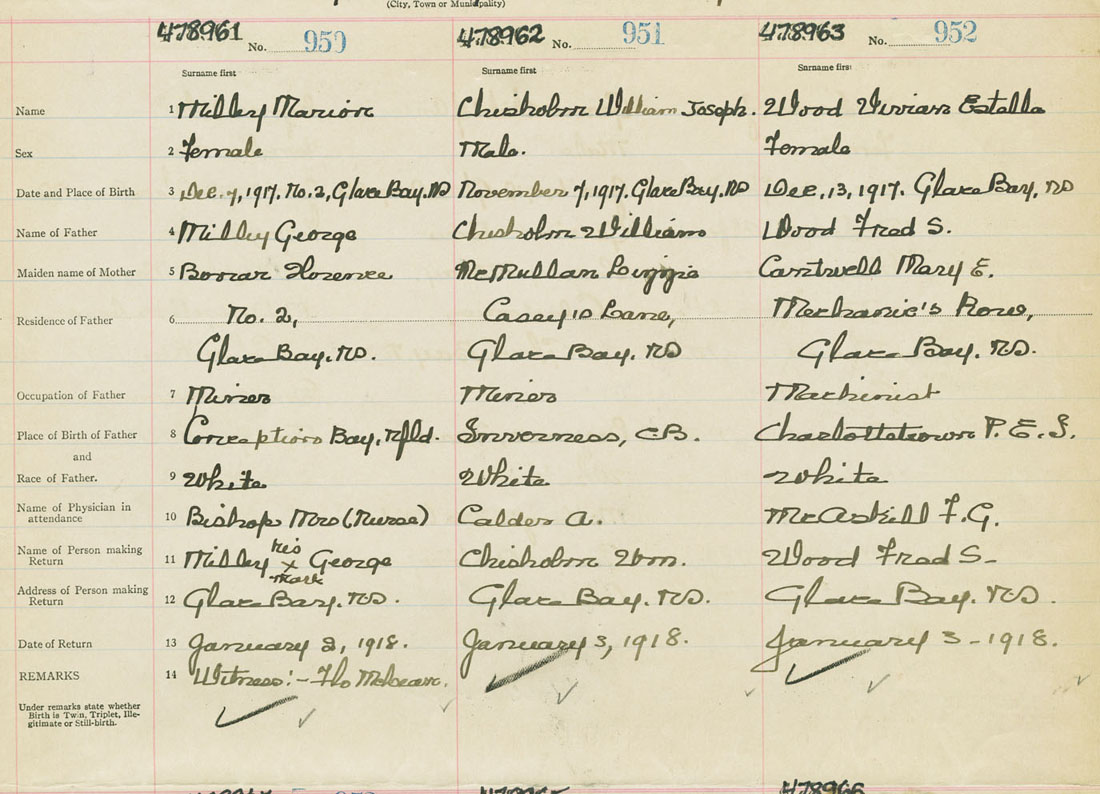 (City, Town or Municipality)
478961 No. 950 478962 No. 951 478963 No. 952
Surname first Surname first Surname first
Name 1 Milley Marion Chisholm William Joseph. Wood Vivian Estella
Sex 2 Female Male. Female
Date and Place of Birth 3 Dec. 7, 1917. No. 2, Glace Bay. NS November 7, 1917. Glace Bay. NS Dec. 13, 1917. Glace Bay, NS
Name of Father 4 Milley George Chisholm William Wood Fred S.
Maiden name of Mother 5 Florence McMullan Lizzie Cantwell Mary E.
Residence of Father 6 No. 2, Casey's Lane, Mechanic's Row,
Glace Bay. NS. Glace Bay. NS Glace Bay. NS.
Occupation of Father 7 Miner Miner Machinist
Place of Birth of Father 8 Conception Bay, Nfld. Inverness, C.B. Charlottetown P.E.I.
and
Race of Father. 9 White White White
Name of Physician in
attendance 10 Bishop Mrs (Nurse) Calder A. McAskill F.G.
Name of Person making
Return 11 Milley his x mark George Chisholm Wm. Wood Fred S-
Address of Person making
Return 12 Glace Bay. NS. Glace Bay. NS. Glace Bay. NS.
Date of Return 13 January 2, 1918. January 3, 1918. January 3-1918.
REMARKS 14 Witness:- McLean.
Under remarks state whether
Birth is Twin, Triplet, Ille-
gitimate or Still-birth.